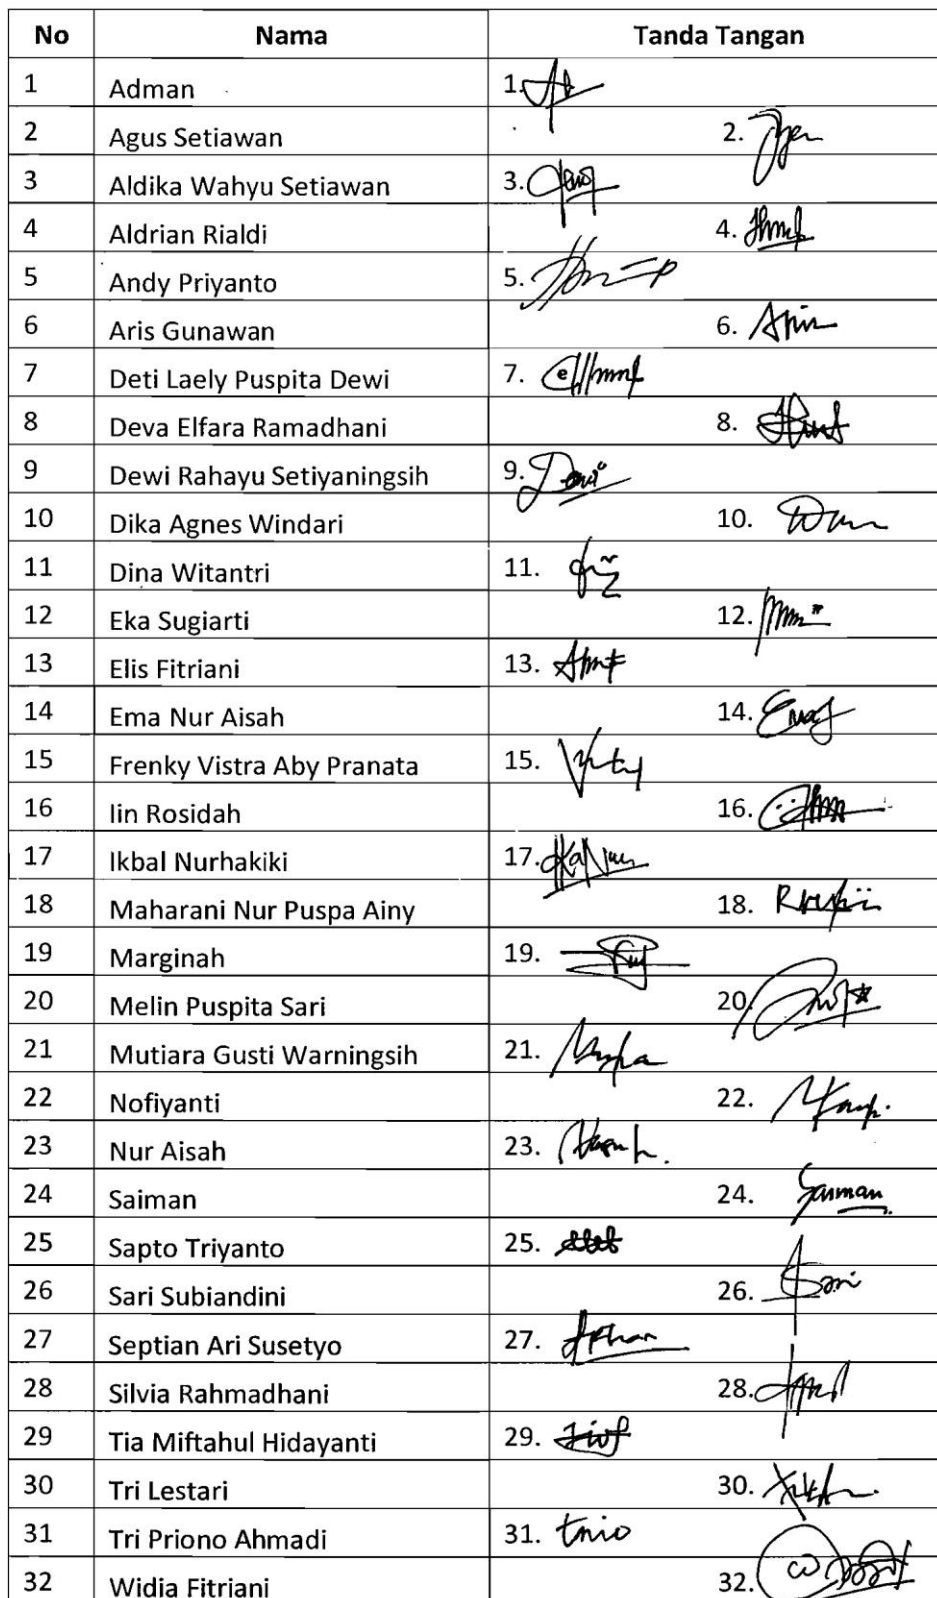 No Nama Tanda Tangan
1 Adman 1.
2 Agus Setiawan 2.
3 Aldika Wahyu Setiawan 3.
4 Aldrian Rialdi 4.
5 Andy Priyanto 5.
6 Aris Gunawan 6.
7 Deti Laely Puspita Dewi 7.
8 Deva Elfara Ramadhani 8.
9 Dewi Rahayu Setiyaningsih 9. Dewi
10 Dika Agnes Windari 10.
11 Dina Witantri 11.
12 Eka Sugiarti 12.
13 Elis Fitriani 13.
14 Ema Nur Aisah 14.
15 Frenky Vistra Aby Pranata 15.
16 Iin Rosidah 16.
17 Ikbal Nurhakiki 17.
18 Maharani Nur Puspa Ainy 18.
19 Marginah 19.
20 Melin Puspita Sari 20.
21 Mutiara Gusti Warningsih 21.
22 Nofiyanti 22.
23 Nur Aisah 23.
24 Saiman 24. Saiman
25 Sapto Triyanto 25.
26 Sari Subiandini 26. Sari
27 Septian Ari Susetyo 27.
28 Silvia Rahmadhani 28.
29 Tia Miftahul Hidayanti 29.
30 Tri Lestari 30.
31 Tri Priono Ahmadi 31. trio
32 Widia Fitriani 32.